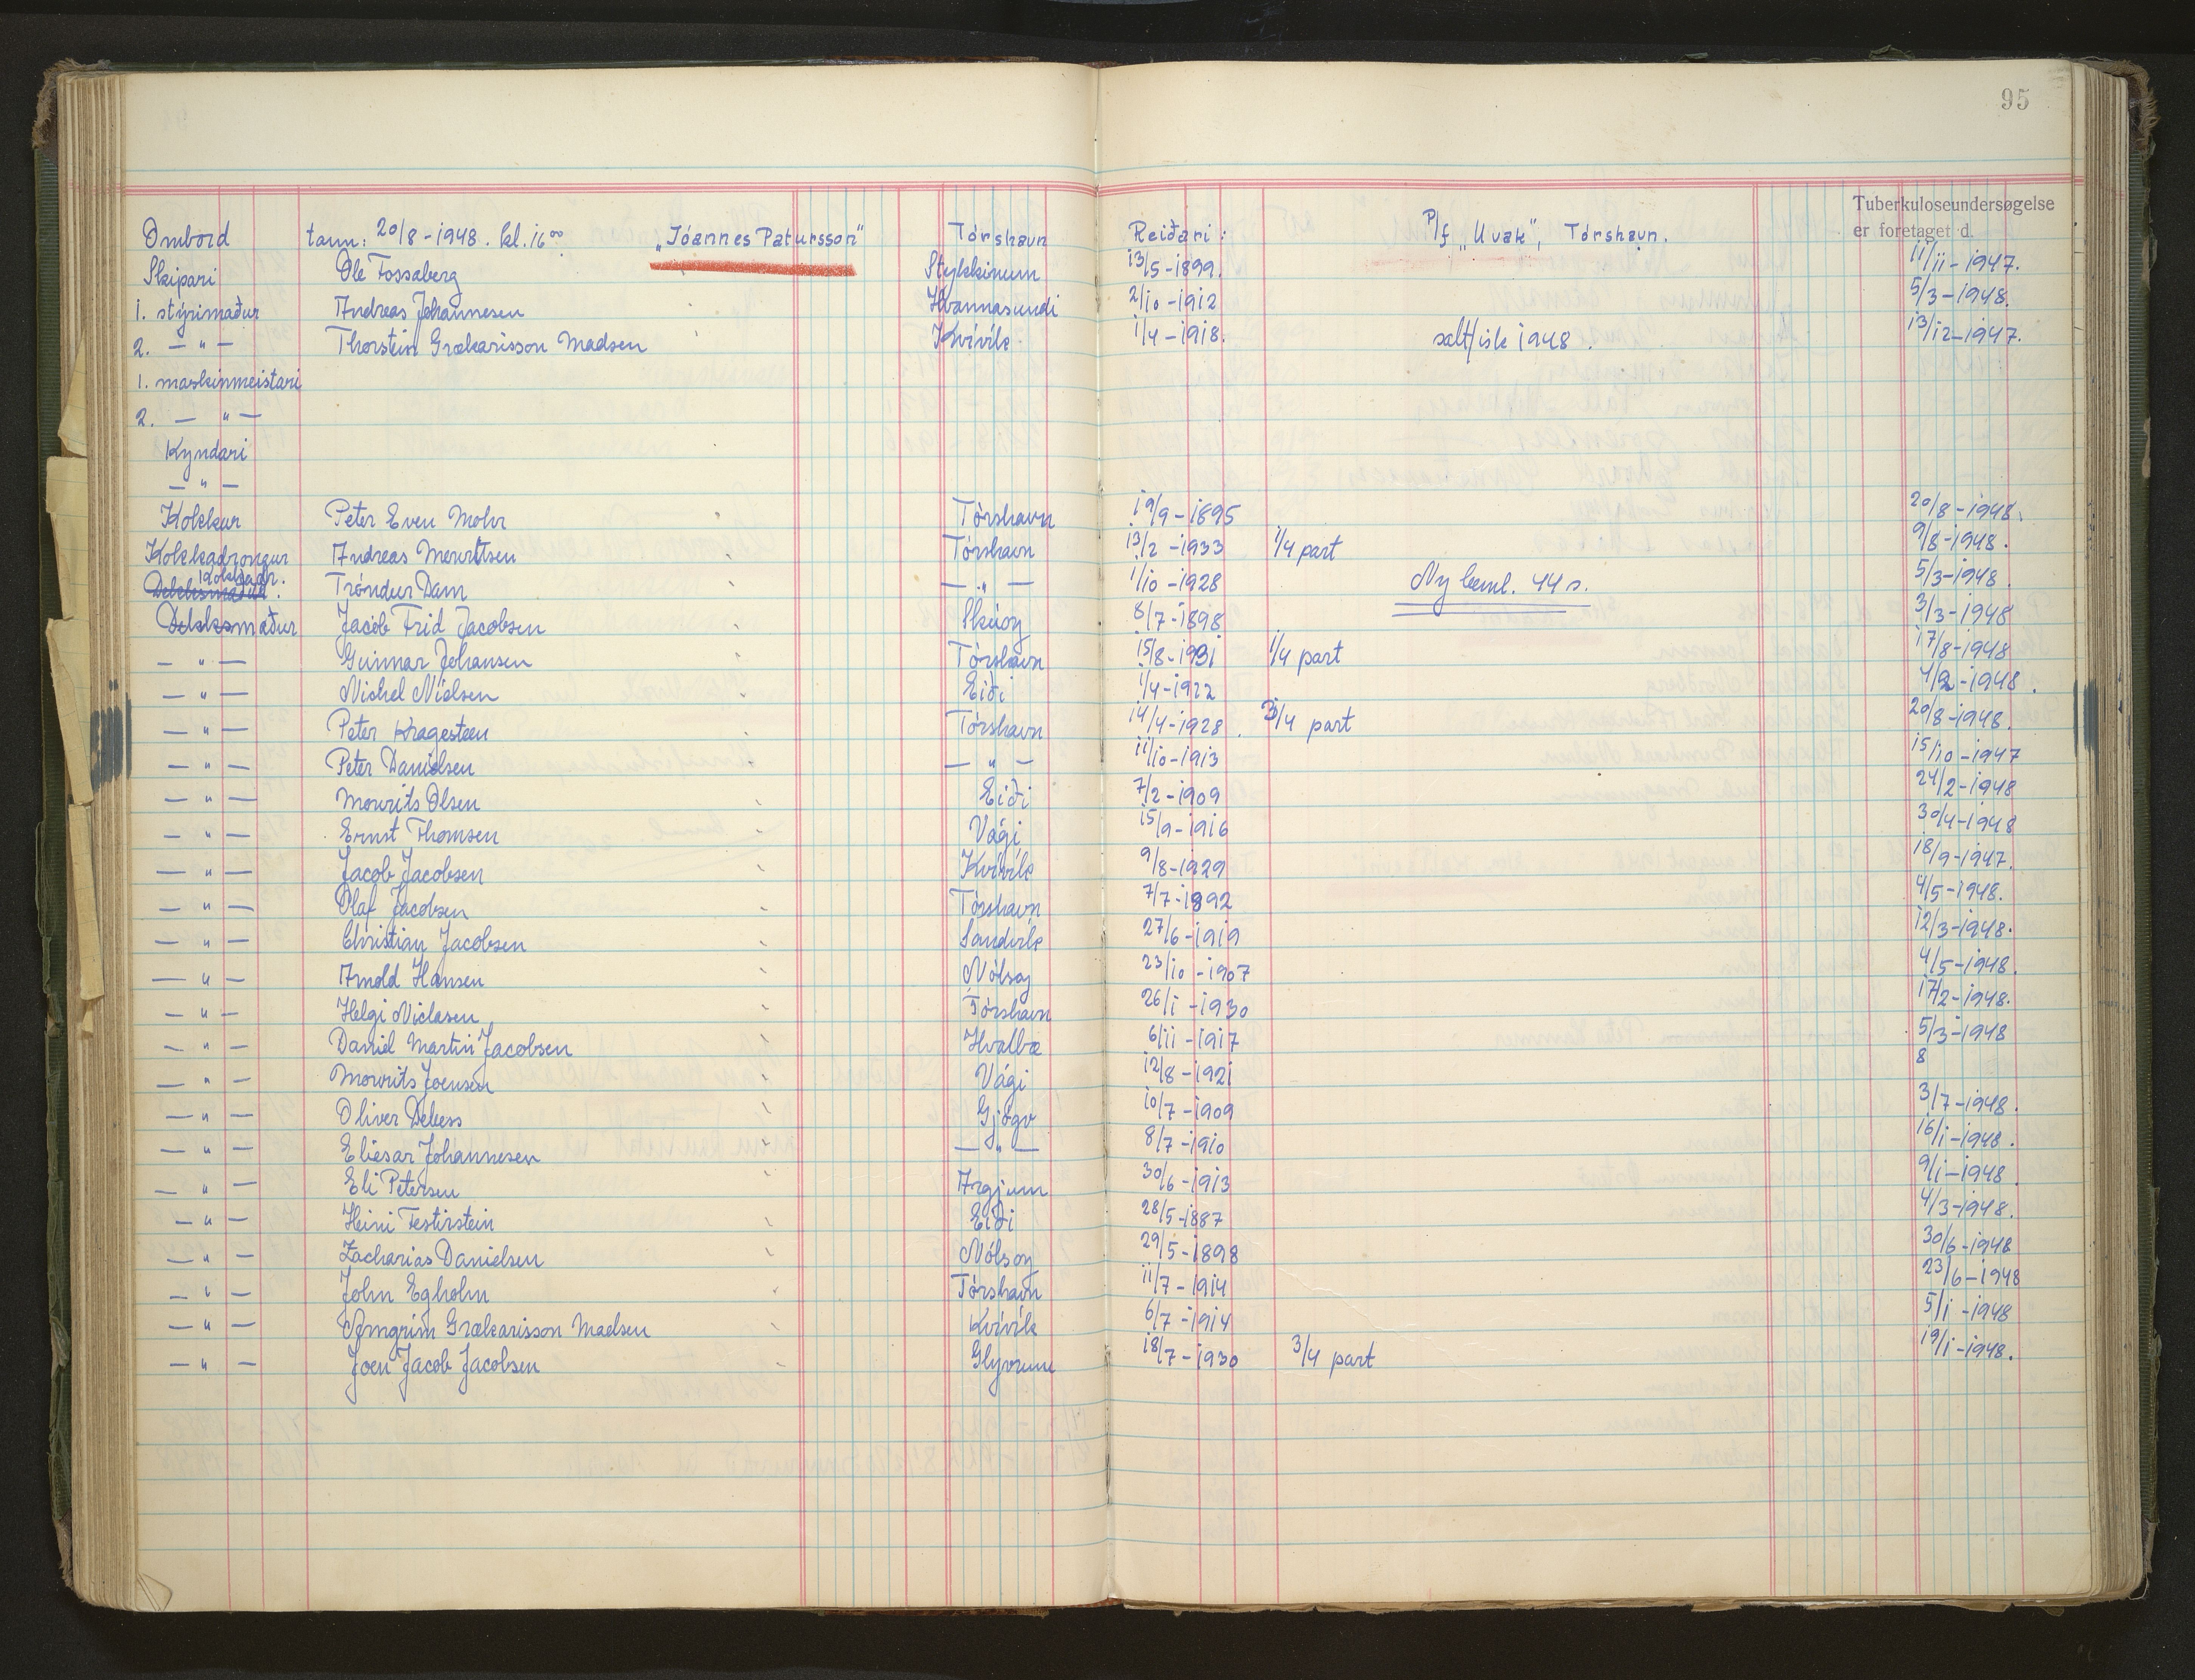 95
Tuberkuloseundersøgelse
er foretaget d.
Ombord tann: 20/8-1948. kl. 16⁰⁰ „Jóannes Patursson" Tórshavn Reiðari: P/f „Uvak", Tórshavn.
Skipari Ole Fossaberg Stykkinum 13/5-1899. 11/11-1947.
1. stýrimaður Andreas Johannesen Hvannasundi 2/10-1912 5/3-1948.
2. — " — Thorstein Grækarisson Madsen Kvívík 1/4-1918. saltfisk 1948. 13/12-1947.
1. maskinmeistari
2. — " —
Kyndari
— " —
Kokkur Peter Even Mohr Tórshavn 19/9-1895 20/8-1948.
Kokkadrongur Andreas Mouritsen Tórshavn 13/2-1933 1/4 part 9/8-1948.
Kokkadr. Tróndur Dam — " — 1/10-1928 Ny beml. 44 s. 5/3-1948.
Dekksmaður Jacob Frid Jacobsen Skúoy 8/7-1898 3/3-1948
— " — Gunnar Johansen Tórshavn 15/8-1931 1/4 part 17/8-1948
— " — Nickel Nielsen Eiði 1/4-1922 4/2-1948.
— " — Peter Kragesteen Tórshavn 14/4-1928. 3/4 part 20/8-1948.
— " — Peter Danielsen — " — 11/10-1913 15/10-1947
— " — Mourits Olsen Eiði 7/2-1909 24/2-1948
— " — Ernst Thomsen Vági 15/9-1916 30/4-1948
— " — Jacob Jacobsen Kvívík 9/8-1929 18/9-1947.
— " — Olaf Jacobsen Tórshavn 7/7-1892 4/5-1948.
— " — Christian Jacobsen Sandvík 27/6-1919 12/3-1948.
— " — Arnold Hansen Nólsoy 23/10-1907 4/5-1948.
— " — Helgi Niclasen Tórshavn 26/1-1930 17/2-1948.
— " — Daniel Martin Jacobsen Hvalba 6/11-1917 5/3-1948
— " — Mourits Joensen Vági 12/8-1921 8
— " — Oliver Debess Gjógv 10/7-1909 3/7-1948.
— " — Eliesar Johannesen — " — 8/7-1910 16/1-1948.
— " — Eli Petersen Argjum 30/6-1913 9/1-1948.
— " — Heini Festirstein Eiði 28/5-1887 4/3-1948.
— " — Zacharias Danielsen Nólsoy 29/5-1898 30/6-1948
— " — John Egholm Tórshavn 11/7-1914 23/6-1948
— " — Arngrim Grækarisson Madsen Kvívík 6/7-1914 5/1-1948
— " — Joen Jacob Jacobsen Glyvrum 18/7-1930 3/4 part 19/1-1948.